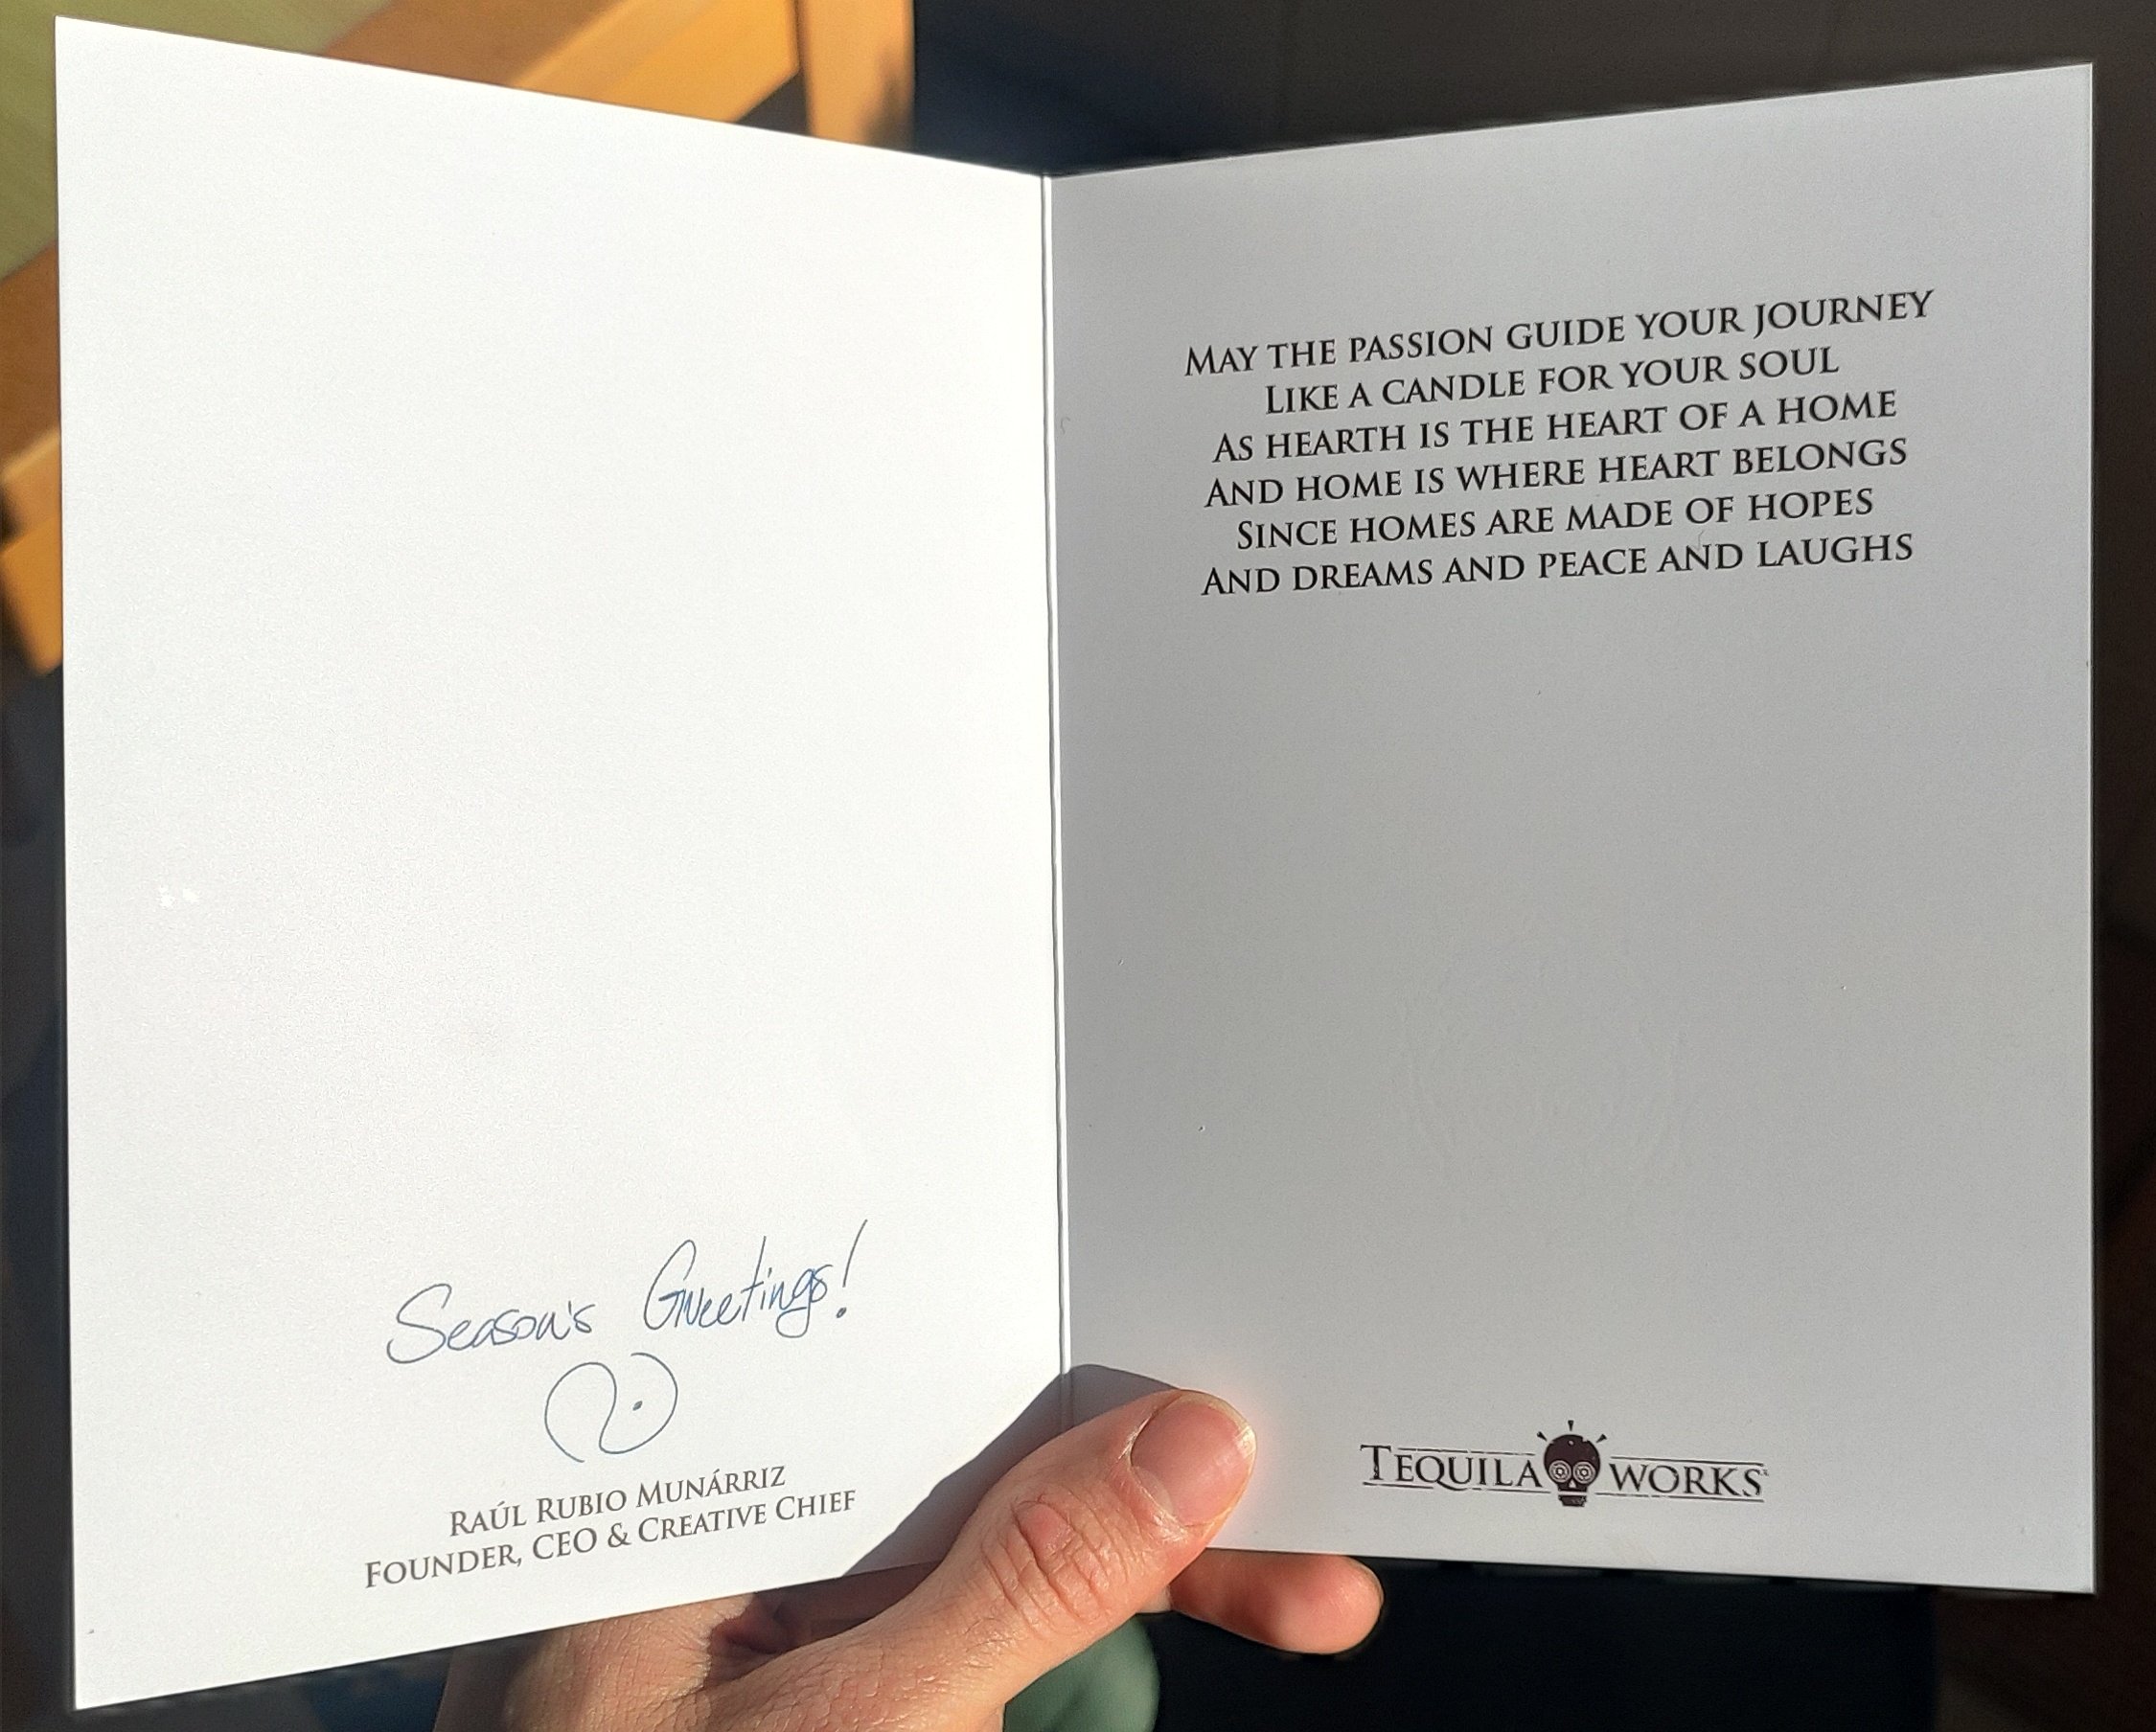 Season's Greetings!
RAÚL RUBIO MUNÁRRIZ
FOUNDER, CEO & CREATIVE CHIEF
MAY THE PASSION GUIDE YOUR JOURNEY
LIKE A CANDLE FOR YOUR SOUL
AS HEARTH IS THE HEART OF A HOME
AND HOME IS WHERE HEART BELONGS
SINCE HOMES ARE MADE OF HOPES
AND DREAMS AND PEACE AND LAUGHS
TEQUILA WORKS